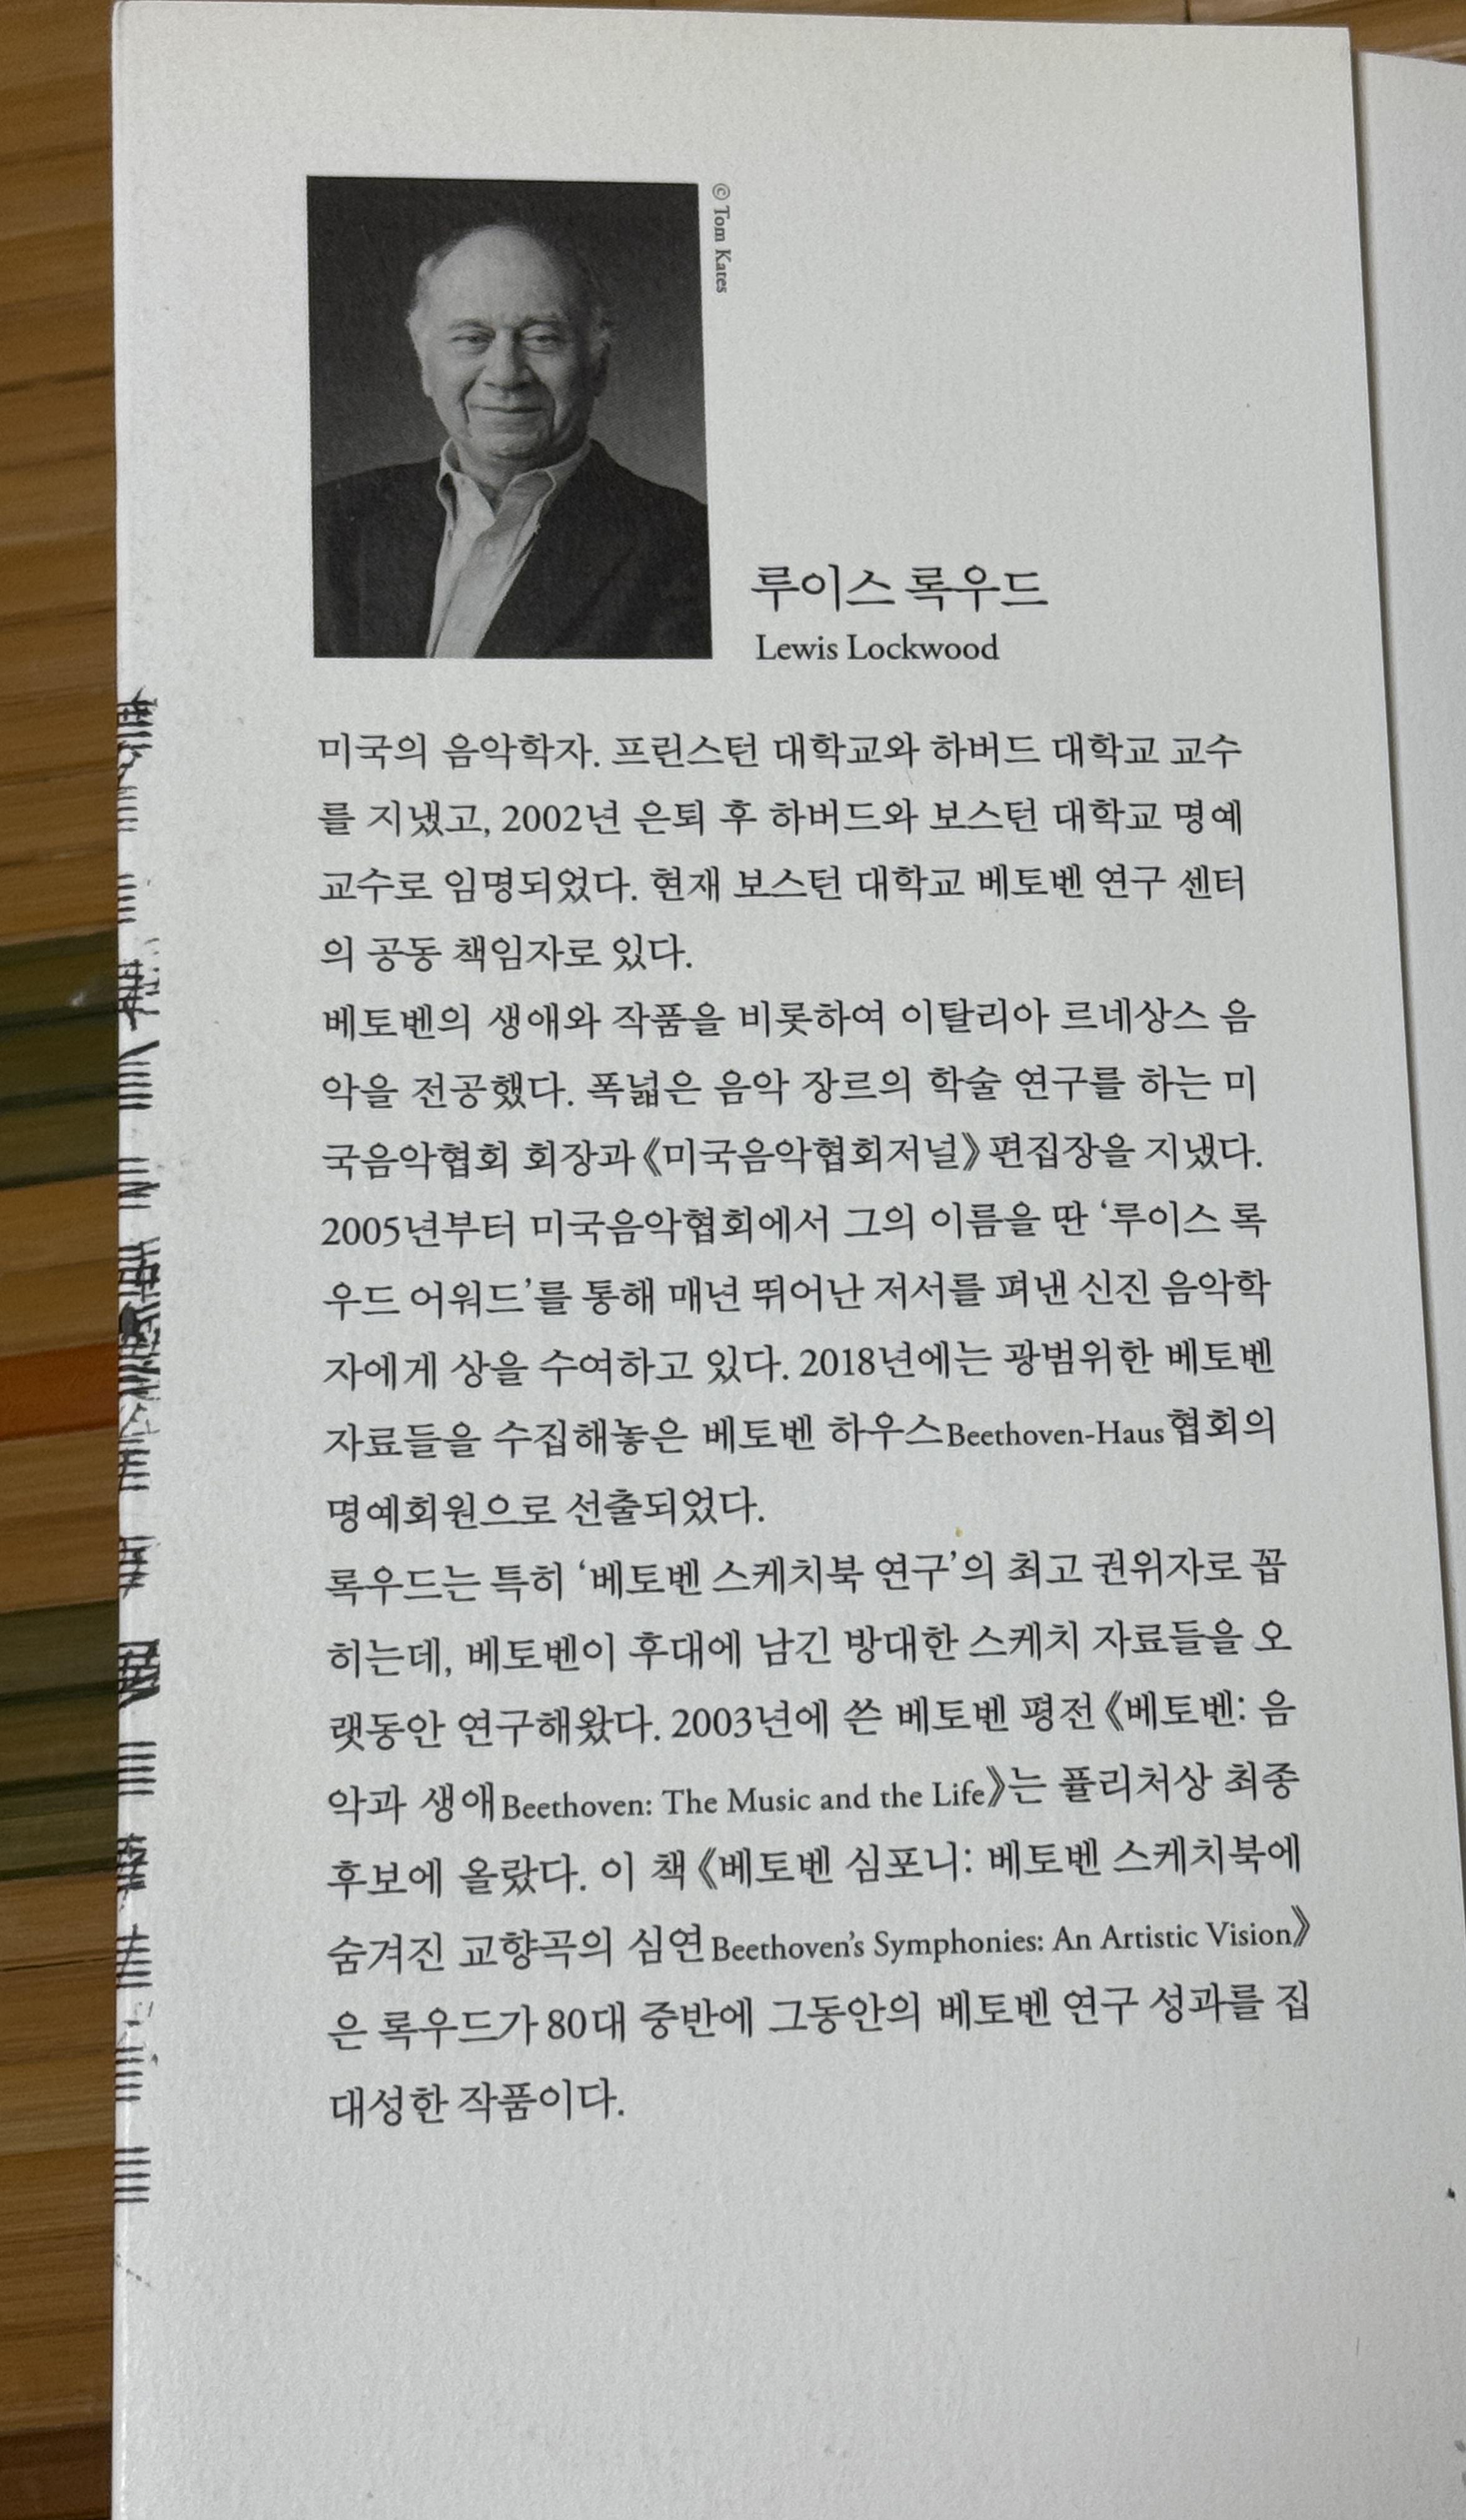 © Tom Kates
루이스 록우드
Lewis Lockwood
미국의 음악학자. 프린스턴 대학교와 하버드 대학교 교수
를 지냈고, 2002년 은퇴 후 하버드와 보스턴 대학교 명예
교수로 임명되었다. 현재 보스턴 대학교 베토벤 연구 센터
의 공동 책임자로 있다.
베토벤의 생애와 작품을 비롯하여 이탈리아 르네상스 음
악을 전공했다. 폭넓은 음악 장르의 학술 연구를 하는 미
국음악협회 회장과 《미국음악협회저널》 편집장을 지냈다.
2005년부터 미국음악협회에서 그의 이름을 딴 ‘루이스 록
우드 어워드’를 통해 매년 뛰어난 저서를 펴낸 신진 음악학
자에게 상을 수여하고 있다. 2018년에는 광범위한 베토벤
자료들을 수집해놓은 베토벤 하우스Beethoven-Haus 협회의
명예회원으로 선출되었다.
록우드는 특히 ‘베토벤 스케치북 연구’의 최고 권위자로 꼽
히는데, 베토벤이 후대에 남긴 방대한 스케치 자료들을 오
랫동안 연구해왔다. 2003년에 쓴 베토벤 평전 《베토벤: 음
악과 생애Beethoven: The Music and the Life》는 퓰리처상 최종
후보에 올랐다. 이 책 《베토벤 심포니: 베토벤 스케치북에
숨겨진 교향곡의 심연Beethoven’s Symphonies: An Artistic Vision》
은 록우드가 80대 중반에 그동안의 베토벤 연구 성과를 집
대성한 작품이다.